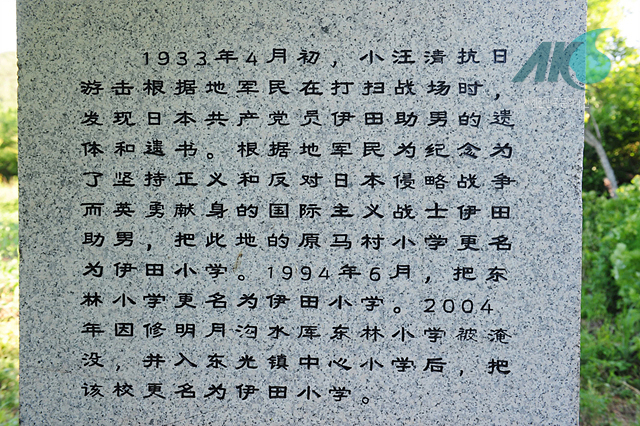 1933年4月初，小汪清抗日
游击根据地军民在打扫战场时，
发现日本共产党员伊田助男的遗
体和遗书。根据地军民为纪念为
了坚持正义和反对日本侵略战争
而英勇献身的国际主义战士伊田
助男，把此地的原马村小学更名
为伊田小学。1994年6月，把东
林小学更名为伊田小学。2004
年因修明月沟水库东林小学被淹
没，并入东光镇中心小学后，把
该校更名为伊田小学。
AK